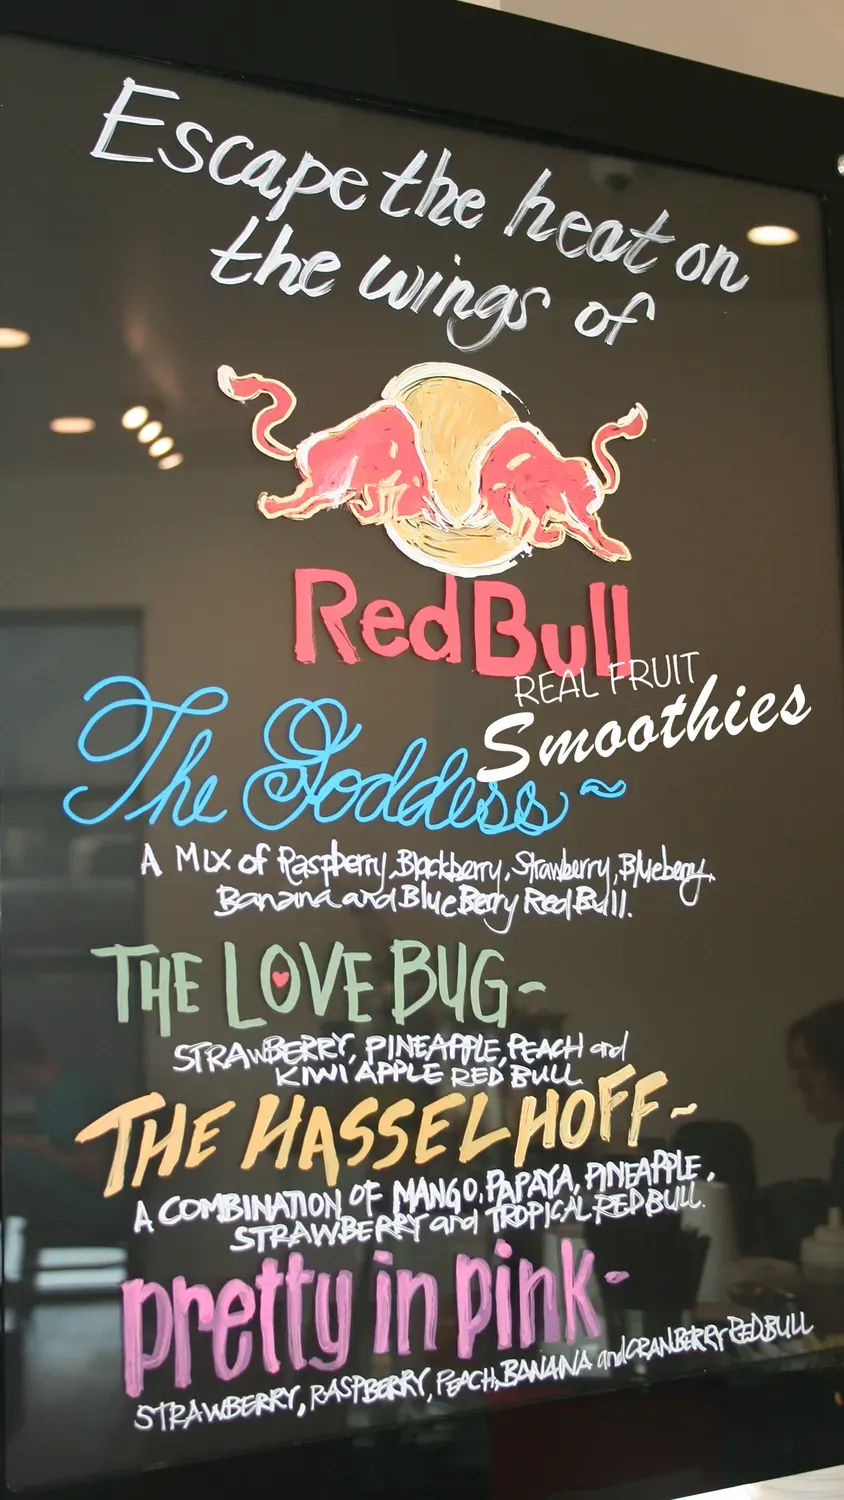 Escape the heat on
the wings of
Red Bull
REAL FRUIT
Smoothies
The Goddess ~
A MIX of Raspberry, Blackberry, Strawberry, Blueberry,
Banana and Blue Berry Red Bull.
THE LOVE BUG-
STRAWBERRY, PINEAPPLE, PEACH and
KIWI APPLE RED BULL
THE HASSELHOFF-
A COMBINATION OF MANGO, PAPAYA, PINEAPPLE,
STRAWBERRY and TROPICAL RED BULL.
pretty in pink-
STRAWBERRY, RASPBERRY, PEACH, BANANA and CRANBERRY RED BULL